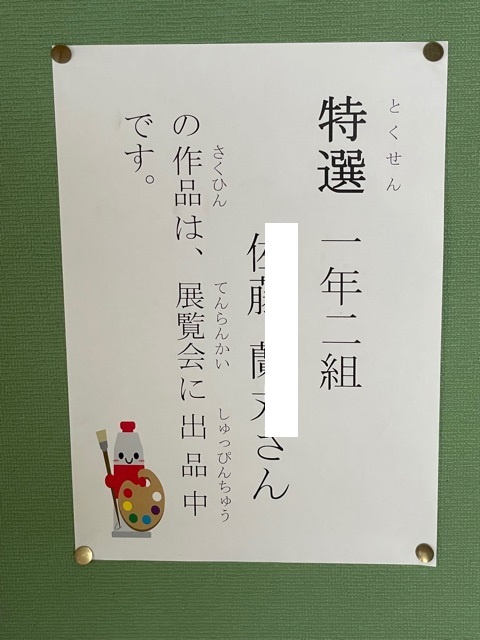 とくせん
特選 一年二組
さん
さくひん てんらんかい しゅっぴんちゅう
の作品は、展覧会に出品中
です。